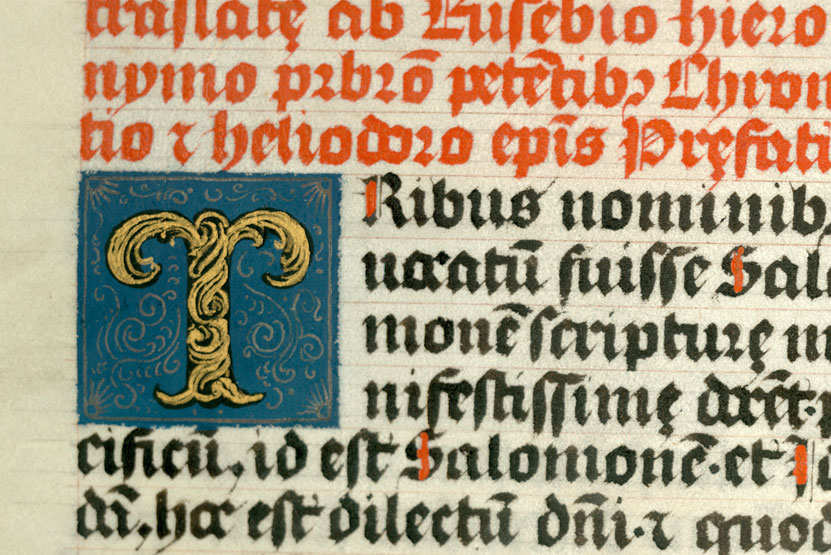 translatę ab Eusebio hiero
nymo prbrō petētibꝫ Chrom
tio ⁊ heliodoro epīs Pręfati
TRibus nominibꝫ
uocatū fuisse Sal
monē scripturę m
nifestissimę docēt·
cificū, id est Salomonē· et
hoc est dilectū dn̄i· ⁊ quod